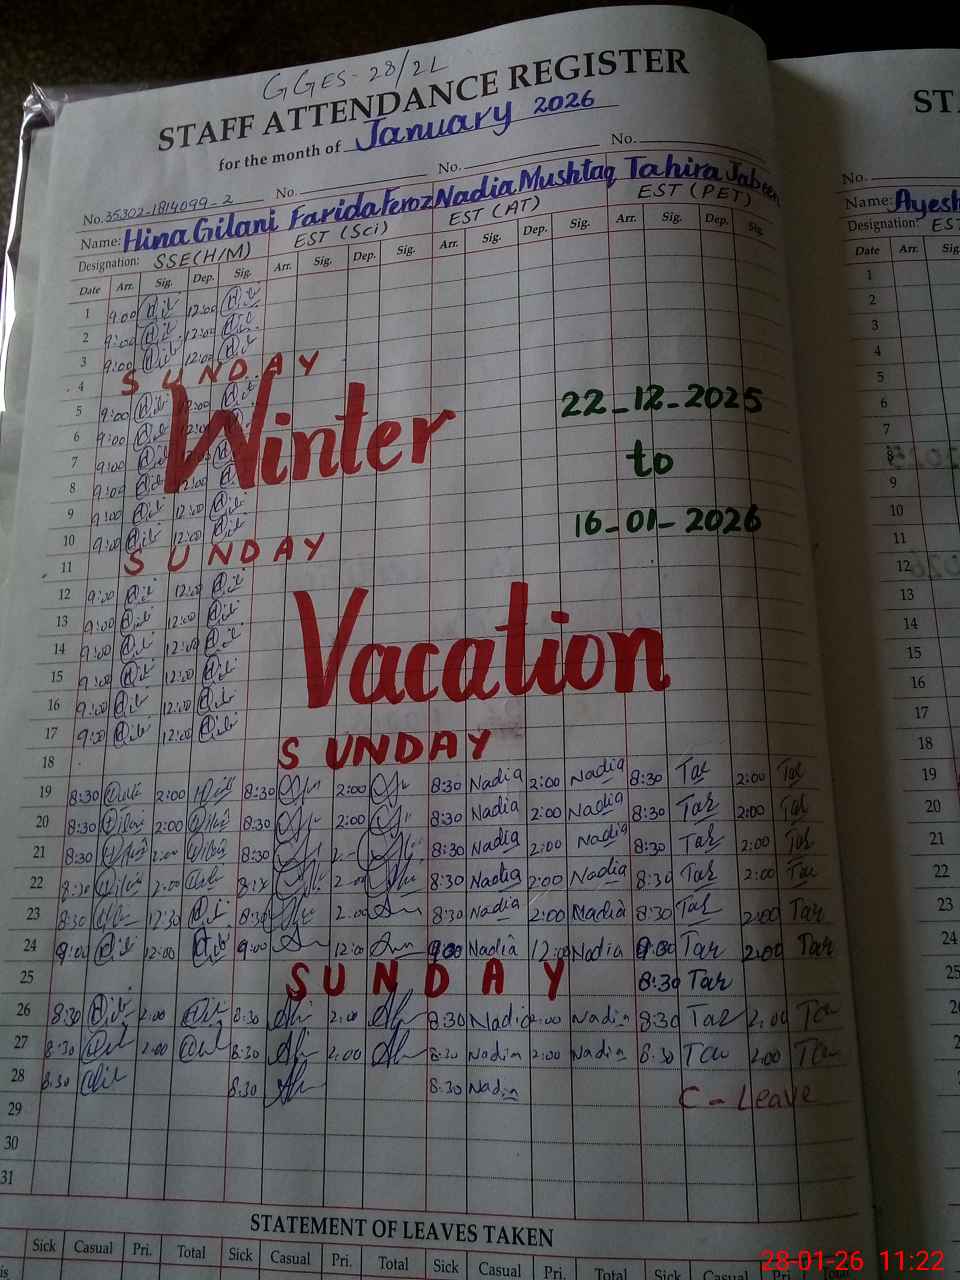 GGES-28/2L
STAFF ATTENDANCE REGISTER
for the month of January 2026
No. 35302-1814099-2 No. No. No.
Name: Hina Gilani Farida Feroz Nadia Mushtaq Tahira Jabeen
Designation: SSE(H/M) EST (Sci) EST (AT) EST (PET)
Date Arr. Sig. Dep. Sig. Arr. Sig. Dep. Sig. Arr. Sig. Dep. Sig. Arr. Sig. Dep. Sig.
1 9:00 12:00
2 9:00 12:00
3 9:00 12:00
4 SUNDAY
5 9:00 12:00
6 9:00 12:00
7 9:00
8 9:00
9 9:00 12:00
10 9:00 12:00
11 SUNDAY
Winter
22-12-2025
to
16-01-2026
12 9:00 12:00
13 9:00 12:00
14 9:00 12:00
15 9:00 12:00
16 9:00 12:00
17 9:00 12:00
Vacation
18 SUNDAY
19 8:30 2:00 8:30 2:00 8:30 Nadia 2:00 Nadia 8:30 Tar 2:00 Tar
20 8:30 2:00 8:30 2:00 8:30 Nadia 2:00 Nadia 8:30 Tar 2:00 Tar
21 8:30 2:00 8:30 8:30 Nadia 2:00 Nadia 8:30 Tar 2:00 Tar
22 8:30 2:00 8:30 8:30 Nadia 2:00 Nadia 8:30 Tar 2:00 Tar
23 8:30 12:30 8:30 2:00 8:30 Nadia 2:00 Nadia 8:30 Tar 2:00 Tar
24 9:00 12:00 9:00 12:00 9:00 Nadia 12:00 Nadia Tar 2:00 Tar
25 SUNDAY 8:30 Tar
26 8:30 2:00 8:30 2:00 8:30 Nadia 2:00 Nadia 8:30 Tar 2:00
27 8:30 2:00 8:30 2:00 8:30 Nadia 2:00 Nadia 8:30 2:00
28 8:30 8:30 8:30 Nadia C-Leave
29
30
31
STATEMENT OF LEAVES TAKEN
Sick Casual Pri. Total Sick Casual Pri. Total Sick Casual Pri. Total Sick Casual
ST
No.
Name: Ayesh
Designation: EST
Date Arr. Sig
1
2
3
4
5
6
7
8
9
10
11
12
13
14
15
16
17
18
19
20
21
22
23
24
25
28-01-26 11:22